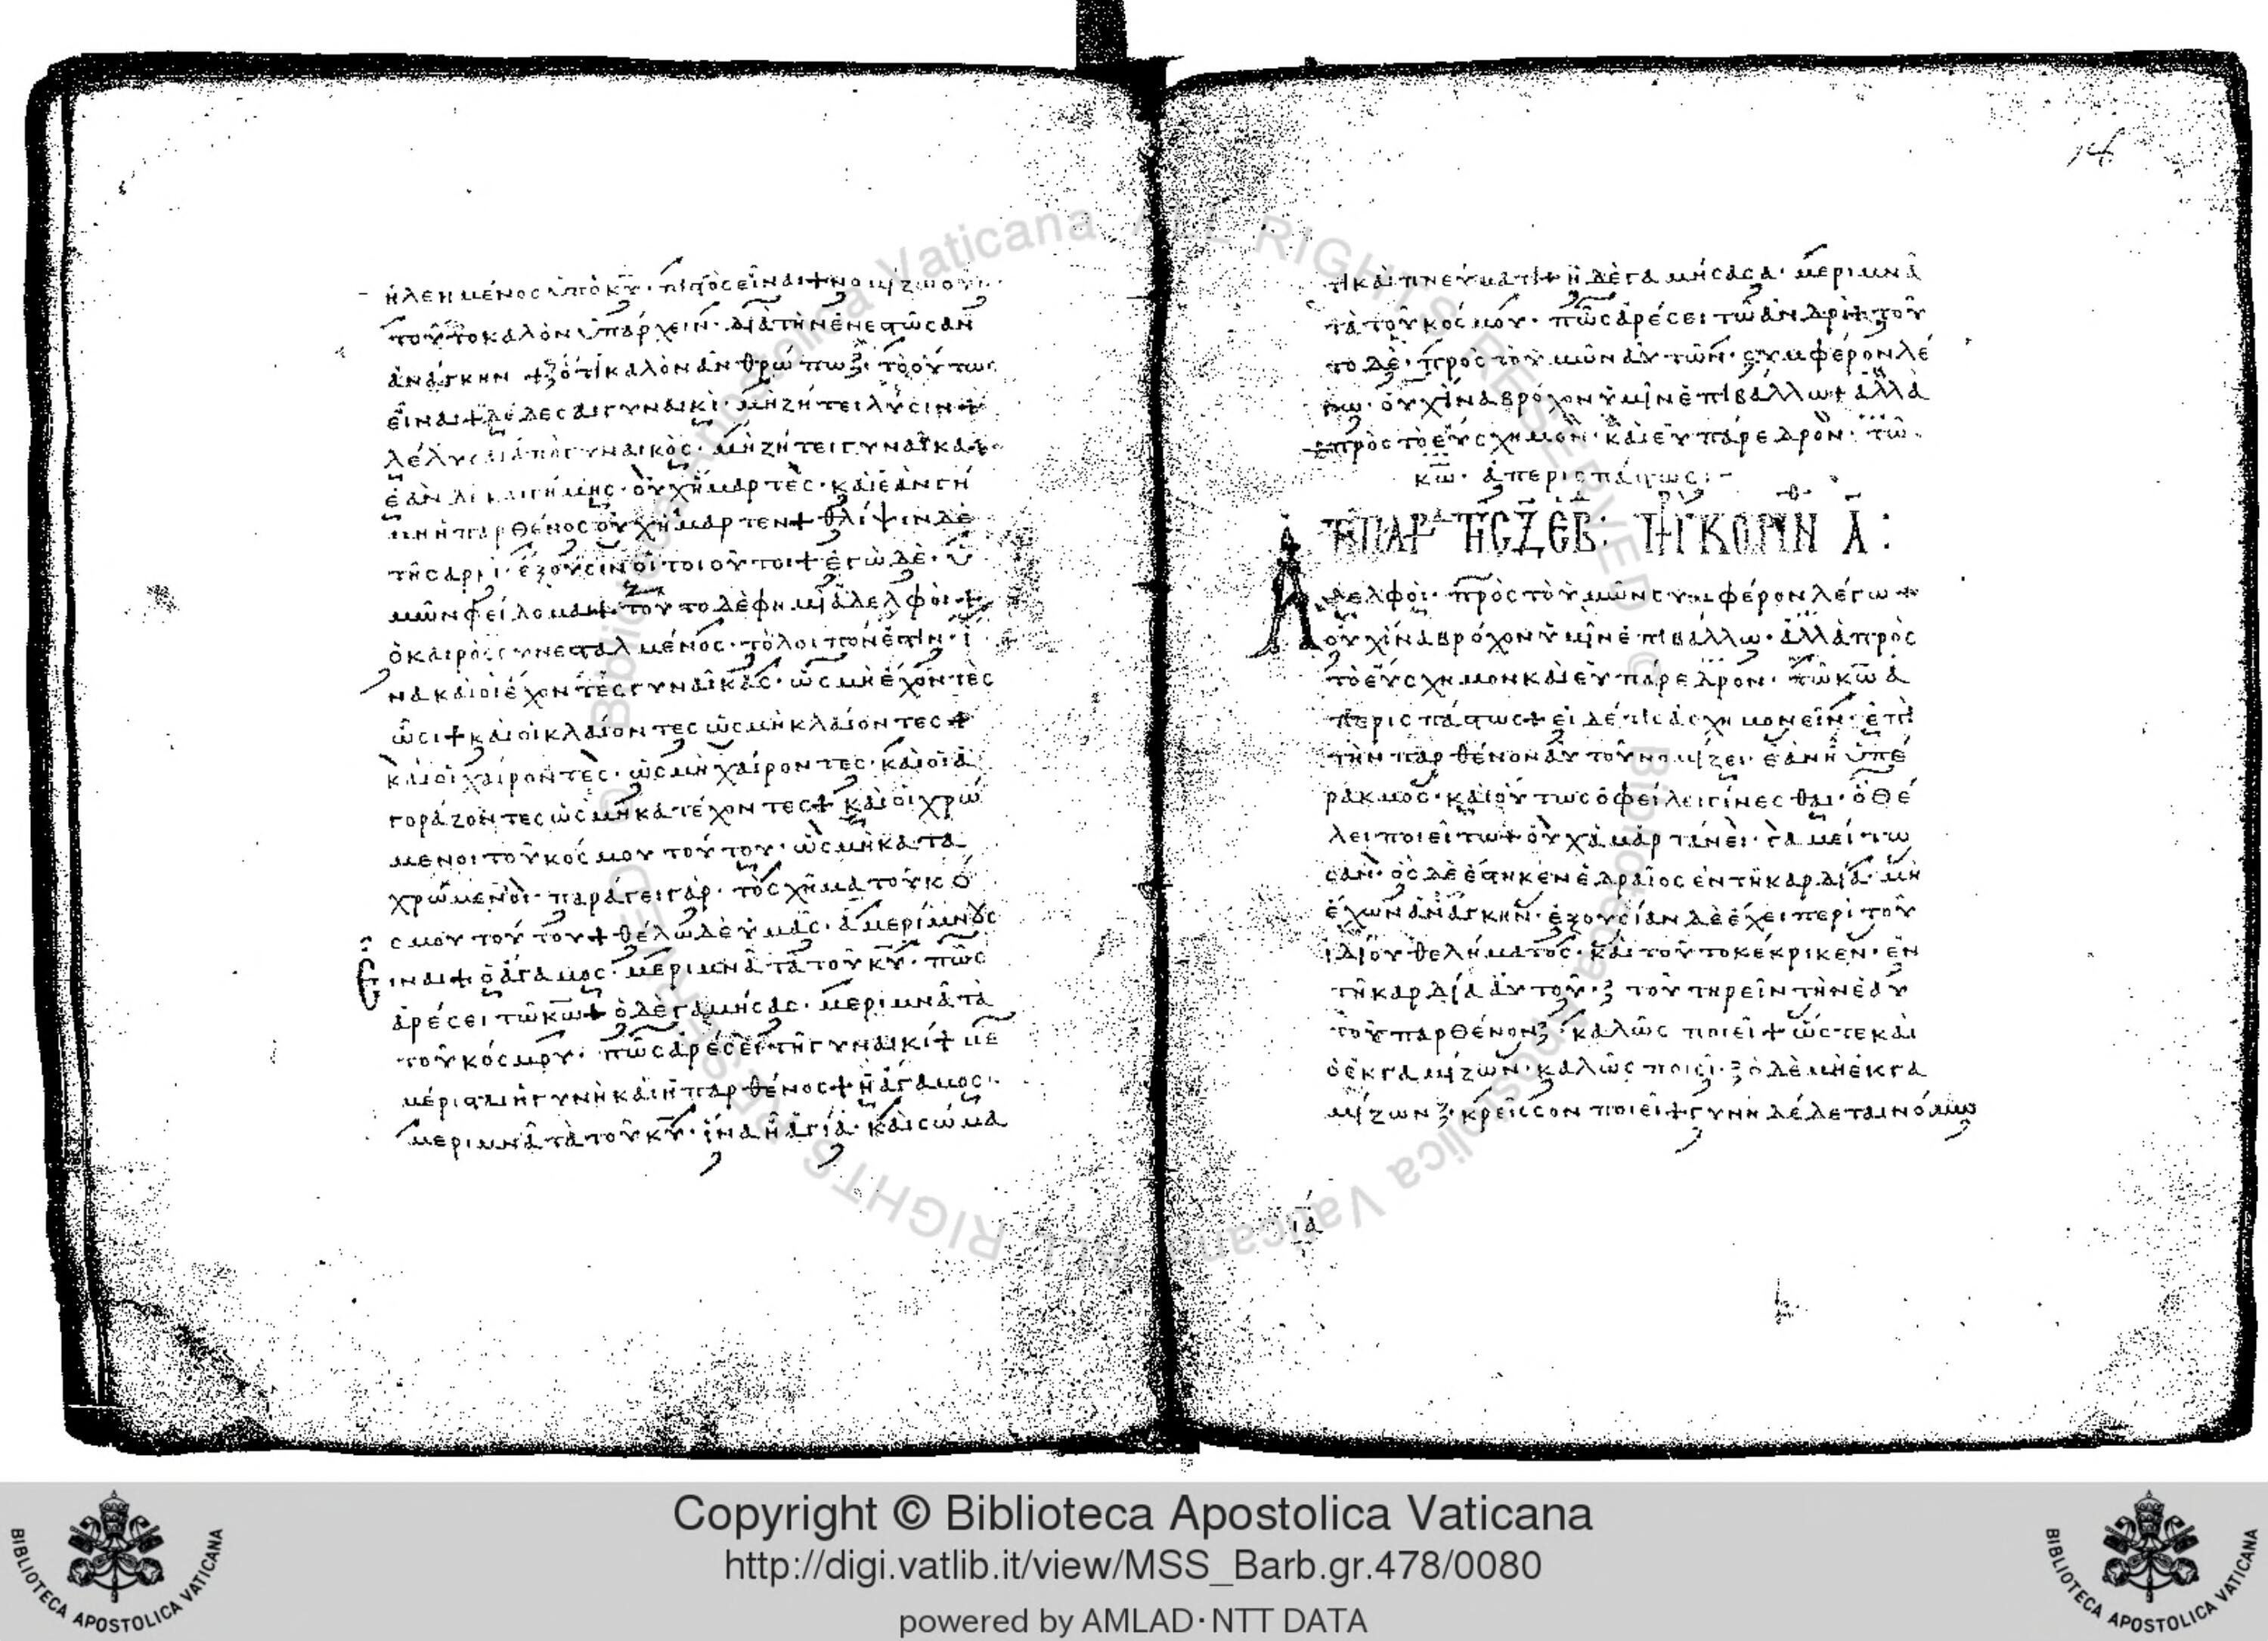 ἠλεημένος ὑπὸ κ̅υ̅· πιστὸς εἶναι + νομίζω οὖν
τοῦτο καλὸν ὑπάρχειν· διὰ τὴν ἐνεστῶσαν
ἀνάγκην + ὅτι καλὸν ἀνθρώπω· τὸ οὕτως
εἶναι + δέδεσαι γυναικὶ· μὴ ζήτει λύσιν +
λέλυσαι ἀπὸ γυναικὸς· μὴ ζήτει γυναῖκα +
ἐὰν δὲ καὶ γήμης· οὐχ ἥμαρτες· καὶ ἐὰν γή
μη ἡ παρθένος οὐχ ἥμαρτεν + θλίψιν δὲ
τῆ σαρκὶ· ἕξουσιν οἱ τοιοῦτοι + ἐγὼ δὲ· ὑ
μῶν φείδομαι + τοῦτο δέ φημι ἀδελφοὶ +
ὁ καιρὸς συνεσταλμένος· τὸ λοιπὸν ἐστὶν· ἵ
να καὶ οἱ ἔχοντες γυναῖκας· ὡς μὴ ἔχοντες
ὦσι + καὶ οἱ κλαίοντες ὡς μὴ κλαίοντες +
καὶ οἱ χαίροντες· ὡς μὴ χαίροντες· καὶ οἱ ἀ
γοράζοντες ὡς μὴ κατέχοντες + καὶ οἱ χρώ
μενοι τοῦ κόσμου τούτου· ὡς μὴ κατα
χρώμενοι· παράγει γὰρ· τὸ σχῆμα τοῦ κό
σμου τούτου + θέλω δὲ ὑμᾶς· ἀμερίμνους
εἶναι + ὁ ἄγαμος· μεριμνᾶ τὰ τοῦ κ̅υ̅· πῶς
ἀρέσει τῶ κ̅ω̅ + ὁ δὲ γαμήσας· μεριμνᾶ τὰ
τοῦ κόσμου· πῶς ἀρέσει τῆ γυναικί + με
μέρισται ἡ γυνὴ καὶ ἡ παρθένος + ἡ ἄγαμος·
μεριμνᾶ τὰ τοῦ κ̅υ̅· ἵνα ἦ ἁγία· καὶ σώμα
14
τι καὶ πνεύματι + ἡ δὲ γαμήσασα· μεριμνᾶ
τὰ τοῦ κόσμου· πῶς ἀρέσει τῶ ἀνδρὶ + τοῦ
το δὲ· πρὸς τὸ ὑμῶν αὐτῶν· συμφέρον λέ
γω· οὐχ ἵνα βρόχον ὑμῖν ἐπιβάλλω + ἀλλὰ
πρὸς τὸ εὔσχημον· καὶ εὐπάρεδρον· τῶ
κ̅ω̅· ἀπερισπάστως:-
Πρὸς Κορινθ α:
Ἀδελφοὶ· πρὸς τὸ ὑμῶν συμφέρον λέγω +
οὐχ ἵνα βρόχον ὑμῖν ἐπιβάλλω· ἀλλὰ πρὸς
τὸ εὔσχημον καὶ εὐπάρεδρον· τῶ κ̅ω̅ ἀ
περισπάστως + εἰ δέ τις ἀσχημονεῖν· ἐπὶ
τὴν παρθένον αὐτοῦ νομίζει· ἐὰν ἦ ὑπέ
ρακμος· καὶ οὕτως ὀφείλει γίνεσθαι· ὃ θέ
λει ποιείτω + οὐχ ἁμαρτάνει· γαμείτω
σαν· ὃς δὲ ἕστηκεν ἑδραῖος ἐν τῆ καρδία· μὴ
ἔχων ἀνάγκην· ἐξουσίαν δὲ ἔχει περὶ τοῦ
ἰδίου θελήματος· καὶ τοῦτο κέκρικεν· ἐν
τῆ καρδία αὐτοῦ· τοῦ τηρεῖν τὴν ἑαυ
τοῦ παρθένον· καλῶς ποιεῖ + ὥστε καὶ
ὁ ἐκγαμίζων· καλῶς ποιεῖ· ὁ δὲ μὴ ἐκγα
μίζων· κρεῖσσον ποιεῖ + γυνὴ δέδεται νόμω
ια
Copyright © Biblioteca Apostolica Vaticana
http://digi.vatlib.it/view/MSS_Barb.gr.478/0080
powered by AMLAD·NTT DATA
BIBLIOTECA APOSTOLICA VATICANA
BIBLIOTECA APOSTOLICA VATICANA